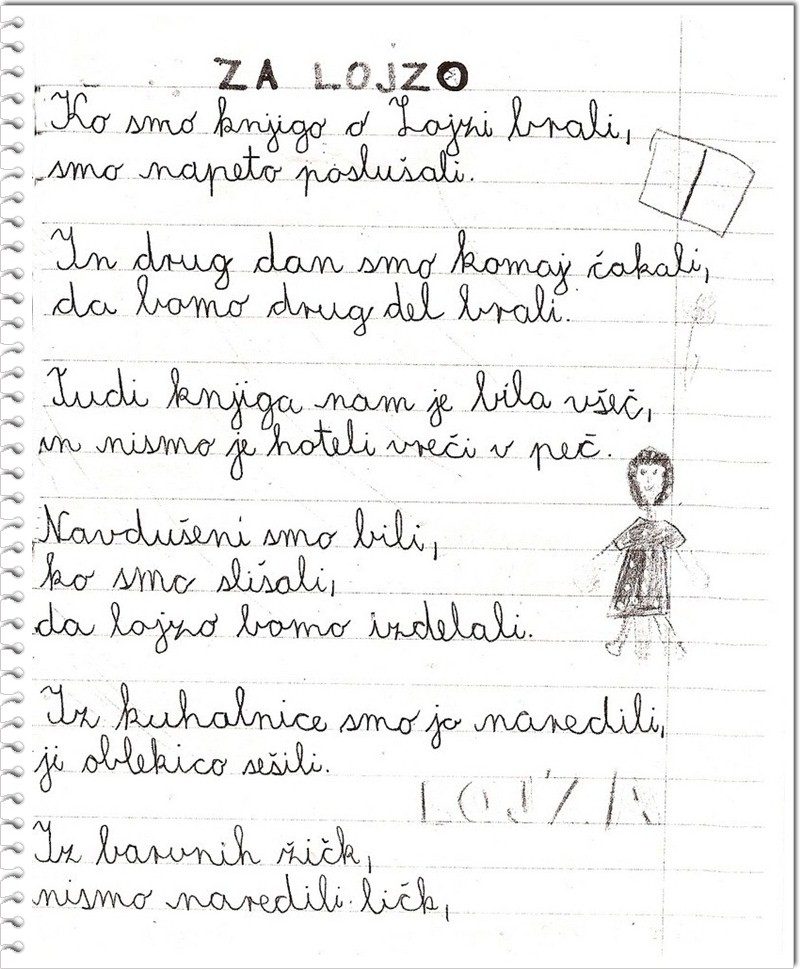 ZA LOJZO
Ko smo knjigo o Lojzi brali,
smo napeto poslušali.
In drug dan smo komaj čakali,
da bomo drug del brali.
Tudi knjiga nam je bila všeč,
in nismo je hoteli vreči v peč.
Navdušeni smo bili,
ko smo slišali,
da lojzo bomo izdelali.
Iz kuhalnice smo jo naredili,
ji oblekico sešili.
LOJZA
Iz barvnih žičk,
nismo naredili ličk,